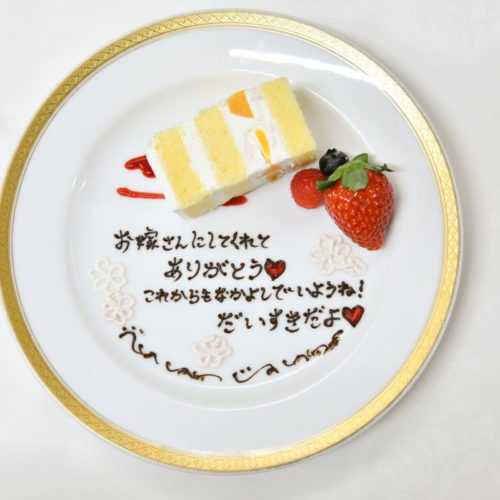 お嫁さんにしてくれて
ありがとう♥
これからもなかよしでいようね!
だいすきだよ♥